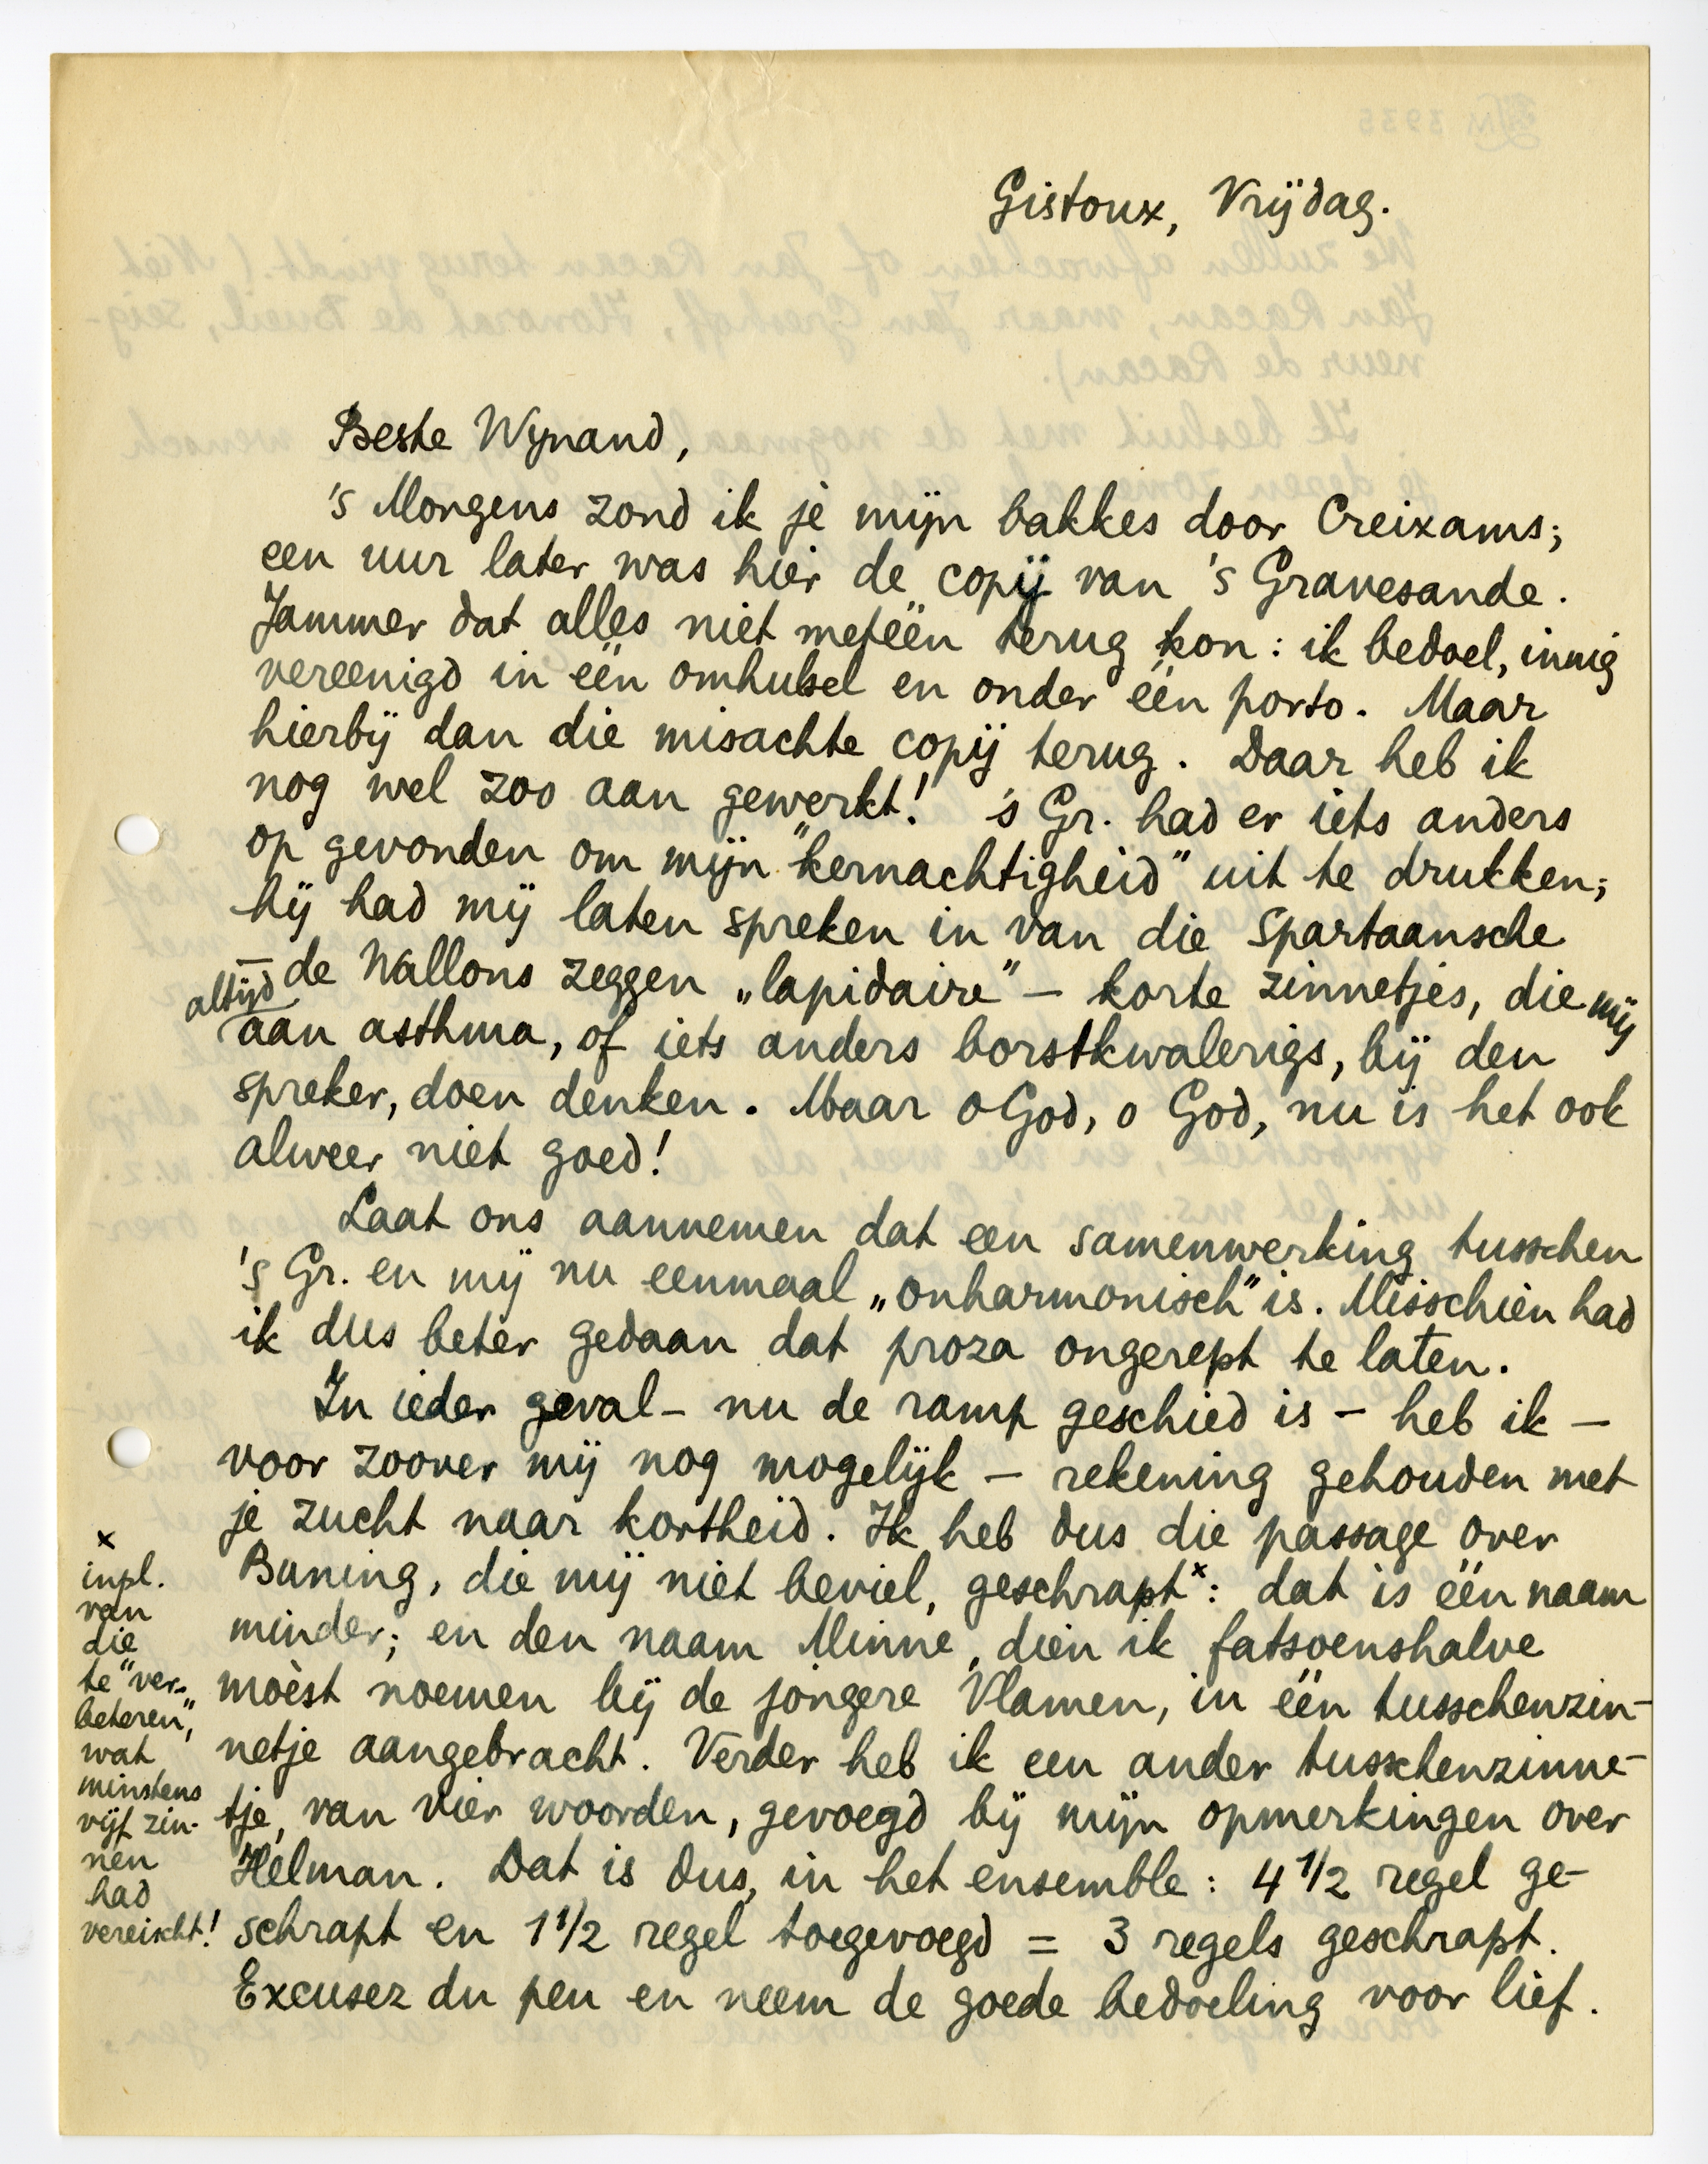 Gistoux, Vrijdag.
Beste Wynand,
's Morgens zond ik je mijn bakkes door Creixams;
een uur later was hier de copij van 's Gravesande.
Jammer dat alles niet metéén terug kon: ik bedoel, innig
vereenigd in één omhulsel en onder één porto. Maar
hierbij dan die misachte copij terug. Daar heb ik
nog wel zoo aan gewerkt! 's Gr. had er iets anders
op gevonden om mijn "kernachtigheid" uit te drukken;
hij had mij laten spreken in van die Spartaansche
— de Wallons zeggen „lapidaire” — korte zinnetjes, die mij
altijd aan asthma, of iets anders borstkwalerigs, bij den
spreker, doen denken. Maar o God, o God, nu is het ook
alweer niet goed!
Laat ons aannemen dat een samenwerking tusschen
's Gr. en mij nu eenmaal „onharmonisch” is. Misschien had
ik dus beter gedaan dat proza ongerept te laten.
In ieder geval – nu de ramp geschied is – heb ik –
voor zoover mij nog mogelijk – rekening gehouden met
je zucht naar kortheid. Ik heb dus die passage over
Buning, die mij niet beviel, geschrapt x: dat is één naam
minder; en den naam Minne, dien ik fatsoenshalve
moèst noemen bij de jongere Vlamen, in één tusschenzin-
netje aangebracht. Verder heb ik een ander tusschenzinne-
tje, van vier woorden, gevoegd bij mijn opmerkingen over
Helman. Dat is dus, in het ensemble: 4 1/2 regel ge-
schrapt en 1 1/2 regel toegevoegd = 3 regels geschrapt.
Excusez du peu en neem de goede bedoeling voor lief.
x
inpl.
van
die
te "ver-
beteren",
wat
minstens
vijf zin-
nen
had
vereischt!